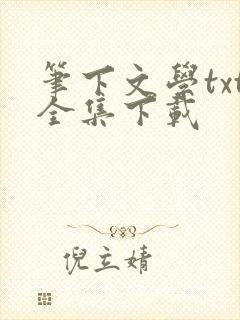 筆下文學txt
全集下載
倪立婧